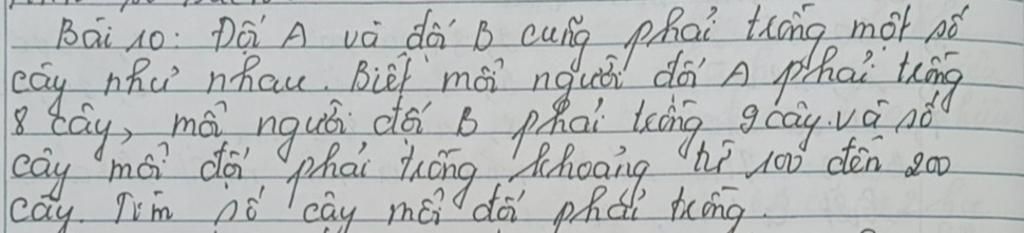 Bài 10: Đội A và đội B cùng phải trồng một số
cây như nhau. Biết mỗi người đội A phải trồng
8 cây, mỗi người đội B phải trồng 9 cây và số
cây mỗi đội phải trồng khoảng từ 100 đến 200
cây. Tìm số cây mỗi đội phải trồng.